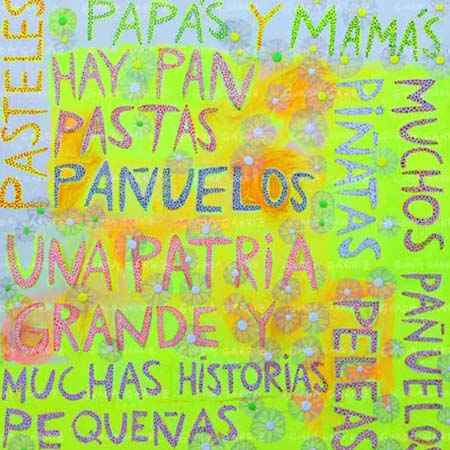 PASTELES
PAPÁS Y MAMÁS
HAY PAN
PASTAS
PAÑUELOS
UNA PATRIA
GRANDE Y
MUCHAS HISTORIAS
PEQUEÑAS
PIÑATAS
PELEAS
MUCHOS PAÑUELOS